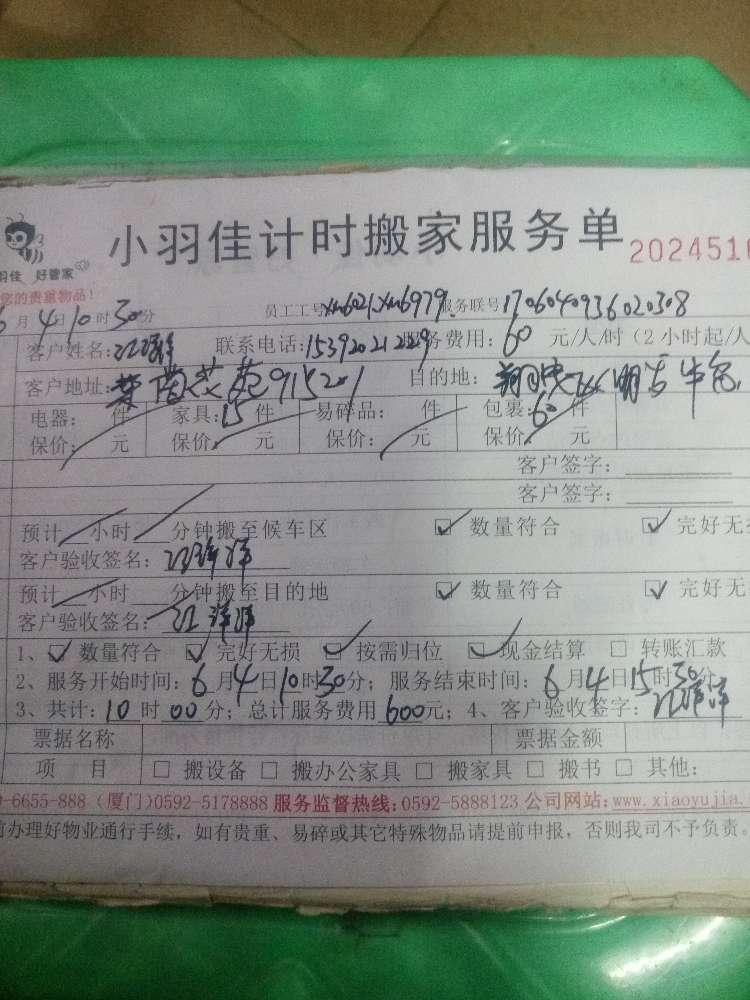 小羽佳计时搬家服务单
2024516
羽佳 好管家
您的贵重物品！
6月4日10时30分 员工工号 xm6021.xm6979 服务联号 1706040936020308
客户姓名: 联系电话: 15392021229 服务费用: 60 元/人/时(2小时起/人
客户地址: 915201 目的地:
电器: 件 家具: 15 件 易碎品: 件 包裹: 60 件
保价: 元 保价: 元 保价: 元 保价: 元
客户签字:
客户签字:
预计 小时 分钟搬至候车区 ☑ 数量符合 ☑ 完好无
客户验收签名:
预计 小时 分钟搬至目的地 ☑ 数量符合 ☑ 完好无
客户验收签名:
1、☑ 数量符合 ☑ 完好无损 ☑ 按需归位 ☑ 现金结算 ☐ 转账汇款
2、服务开始时间: 6月4日10时30分; 服务结束时间: 6月4日15时30分
3、共计: 10 时 00 分; 总计服务费用 600 元; 4、客户验收签字:
票据名称 票据金额
项 目 ☐ 搬设备 ☐ 搬办公家具 ☐ 搬家具 ☐ 搬书 ☐ 其他:
-6655-888 (厦门)0592-5178888 服务监督热线:0592-5888123 公司网站:www.xiaoyujia.
前办理好物业通行手续，如有贵重、易碎或其它特殊物品请提前申报，否则我司不予负责。